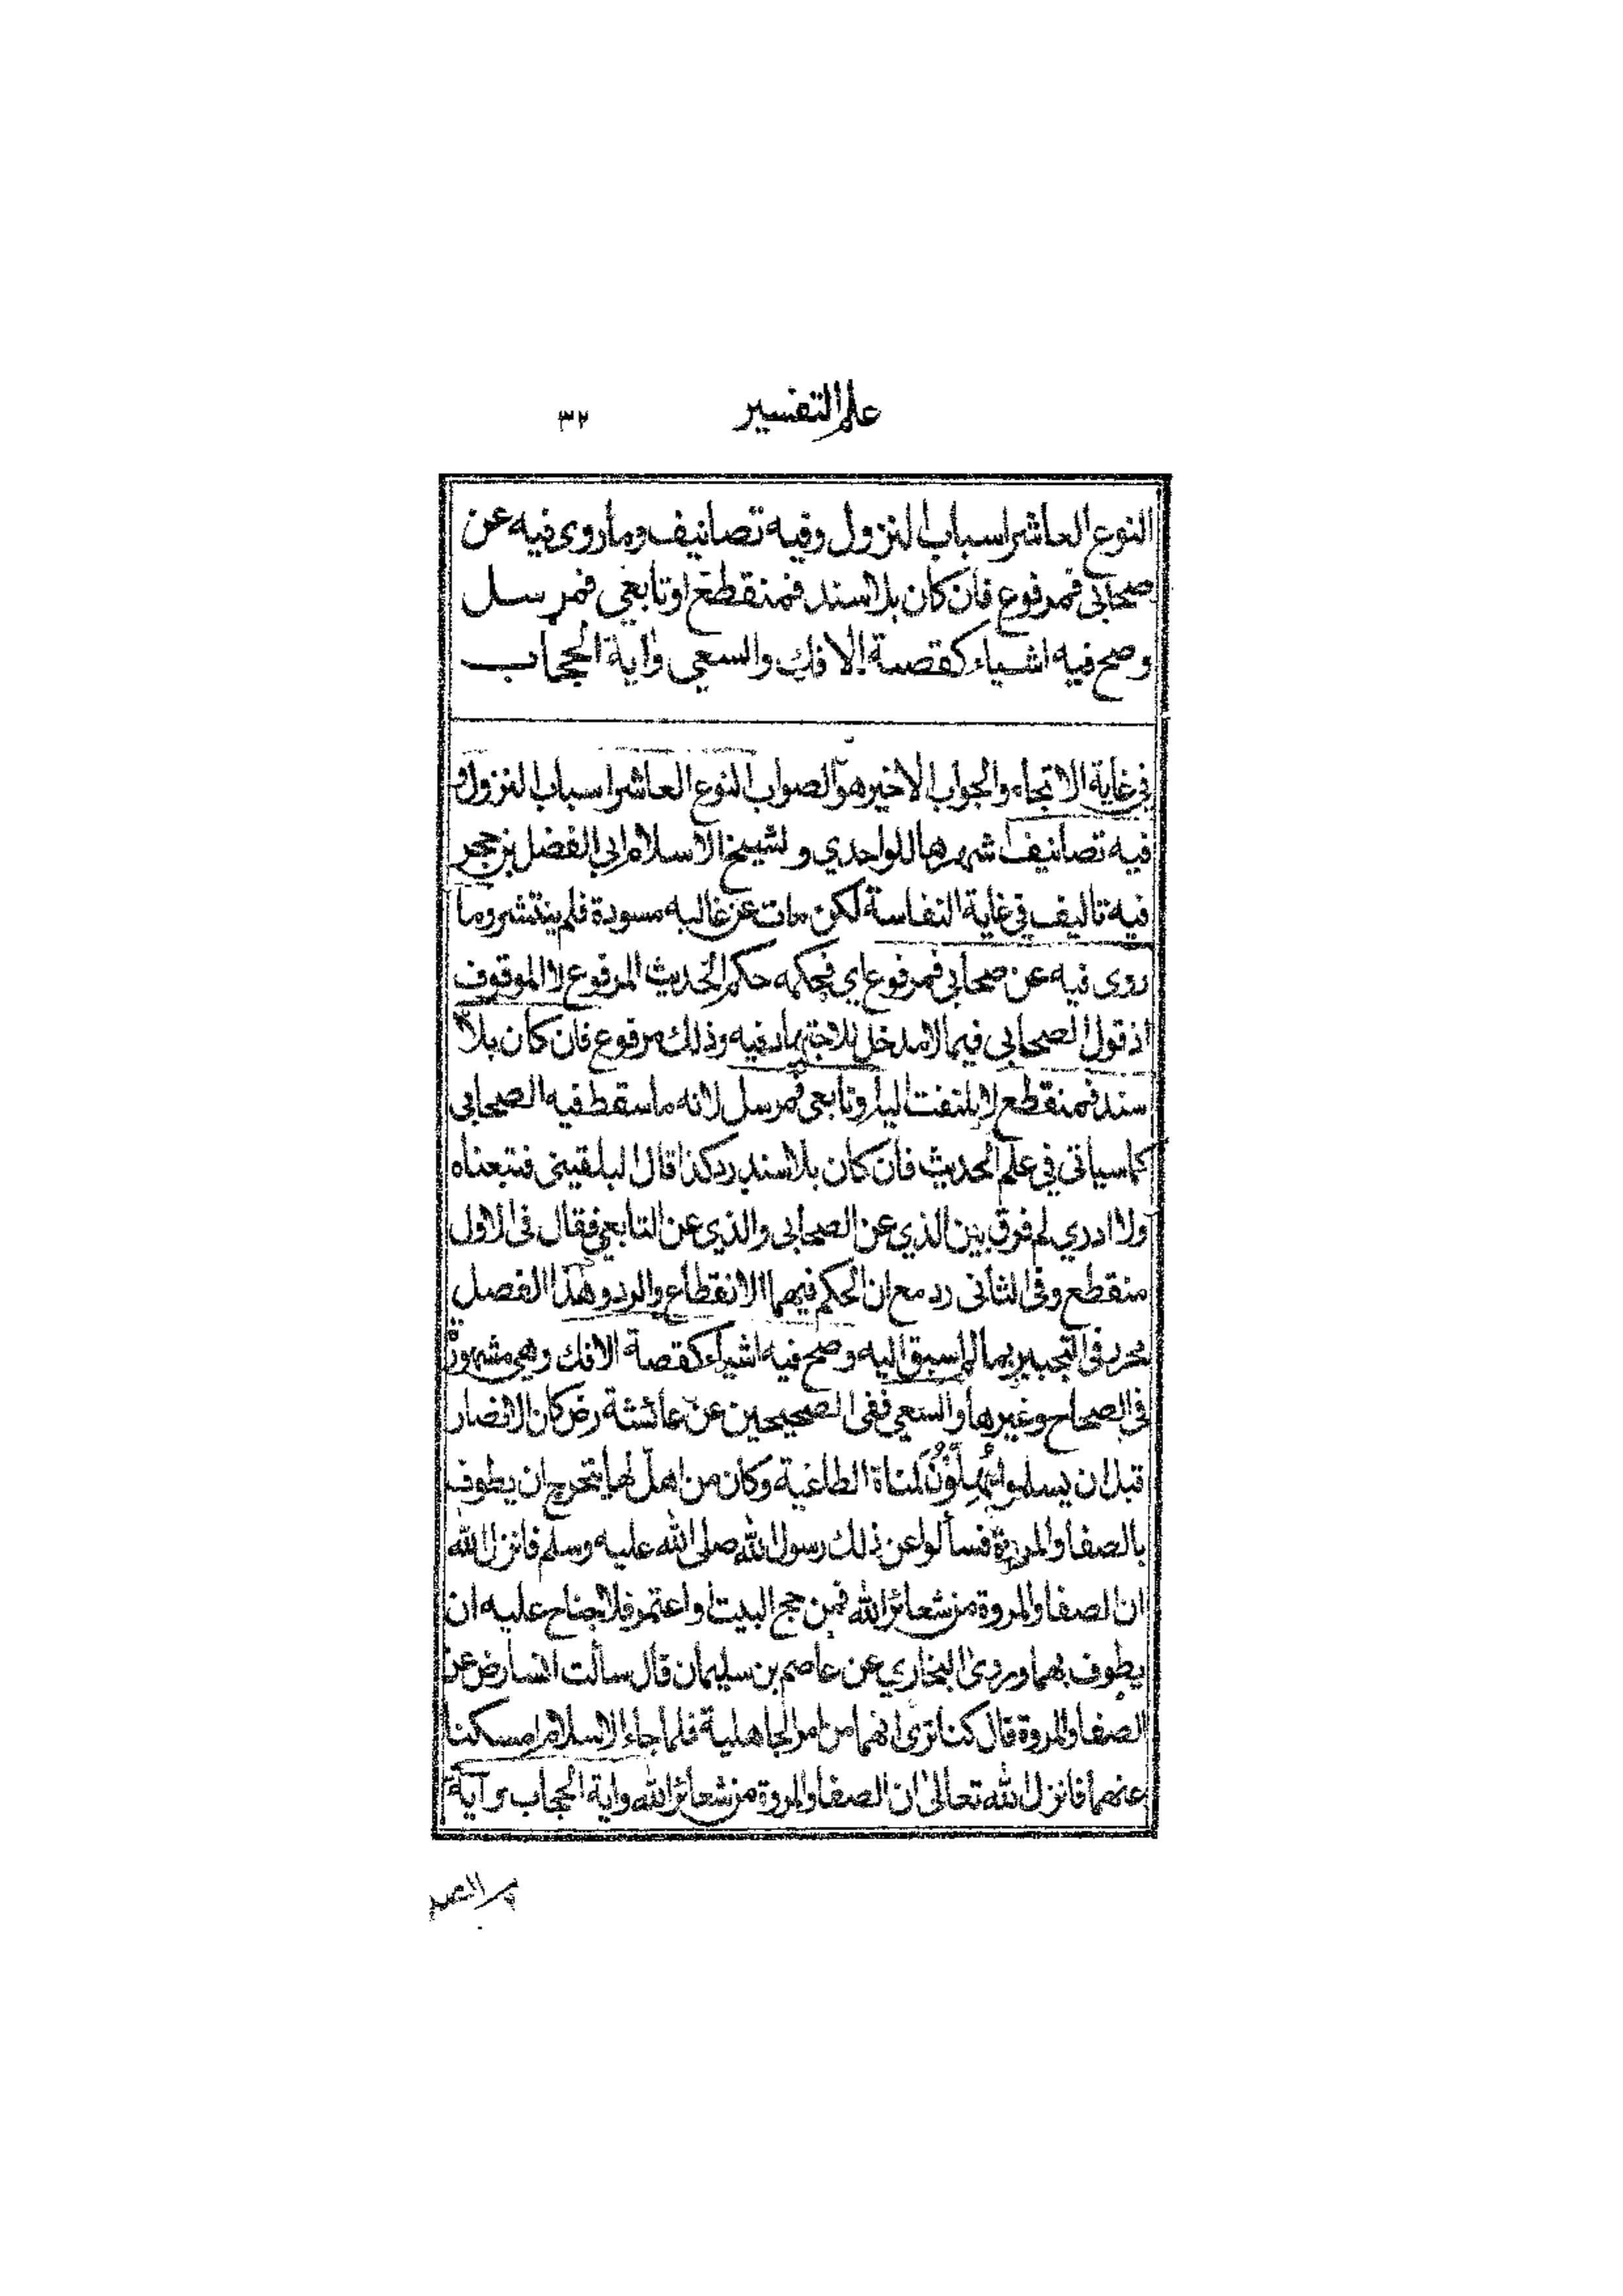 علم التفسير ٣٢
النوع العاشر اسباب النزول وفيه تصانيف وما روى فيه عن
صحابي فمرفوع فان كان بلا سند فمنقطع او تابعي فمرسل
وصح فيه اشياء كقصة الافك والسعي واية الحجاب
في غاية الاتجاه والجواب الاخير هو الصواب النوع العاشر اسباب النزول و
فيه تصانيف اشهرها للواحدي ولشيخ الاسلام ابي الفضل بن حجر
فيه تاليف في غاية النفاسة لكن مات عن غالبه مسودة فلم ينتشر وما
روى فيه عن صحابي فمرفوع اي فحكمه حكم الحديث المرفوع لا الموقوف
اذ قول الصحابي فيما لا مدخل للاجتهاد فيه وذلك مرفوع فان كان بلا
سند فمنقطع لا يلتفت اليه او تابعي فمرسل لانه ما سقط فيه الصحابي
كما سياتي في علم الحديث فان كان بلا سند رد كذا قال البلقيني فتبعناه
ولا ادري لم فرق بين الذي عن الصحابي والذي عن التابعي فقال في الاول
منقطع وفي الثاني رد مع ان الحكم فيهما الانقطاع والرد وهذا الفصل
محرر في التحبير بما لم اسبق اليه وصح فيه اشياء كقصة الافك وهي مشهورة
في الصحاح وغيرها والسعي ففي الصحيحين عن عائشة رض كان الانصار
قبل ان يسلموا يُهِلُّوْنَ لمناة الطاغية وكان من اهل لها يتحرج ان يطوف
بالصفا والمروة فسألوا عن ذلك رسول الله صلى الله عليه وسلم فانزل الله
ان الصفا والمروة من شعائر الله فمن حج البيت او اعتمر فلا جناح عليه ان
يطوف بهما وروى البخاري عن عاصم بن سليمان قال سالت انسا رض عن
الصفا والمروة قال كنا نرى انهما من امر الجاهلية فلما جاء الاسلام امسكنا
عنهما فانزل الله تعالى ان الصفا والمروة من شعائر الله واية الحجاب و آية